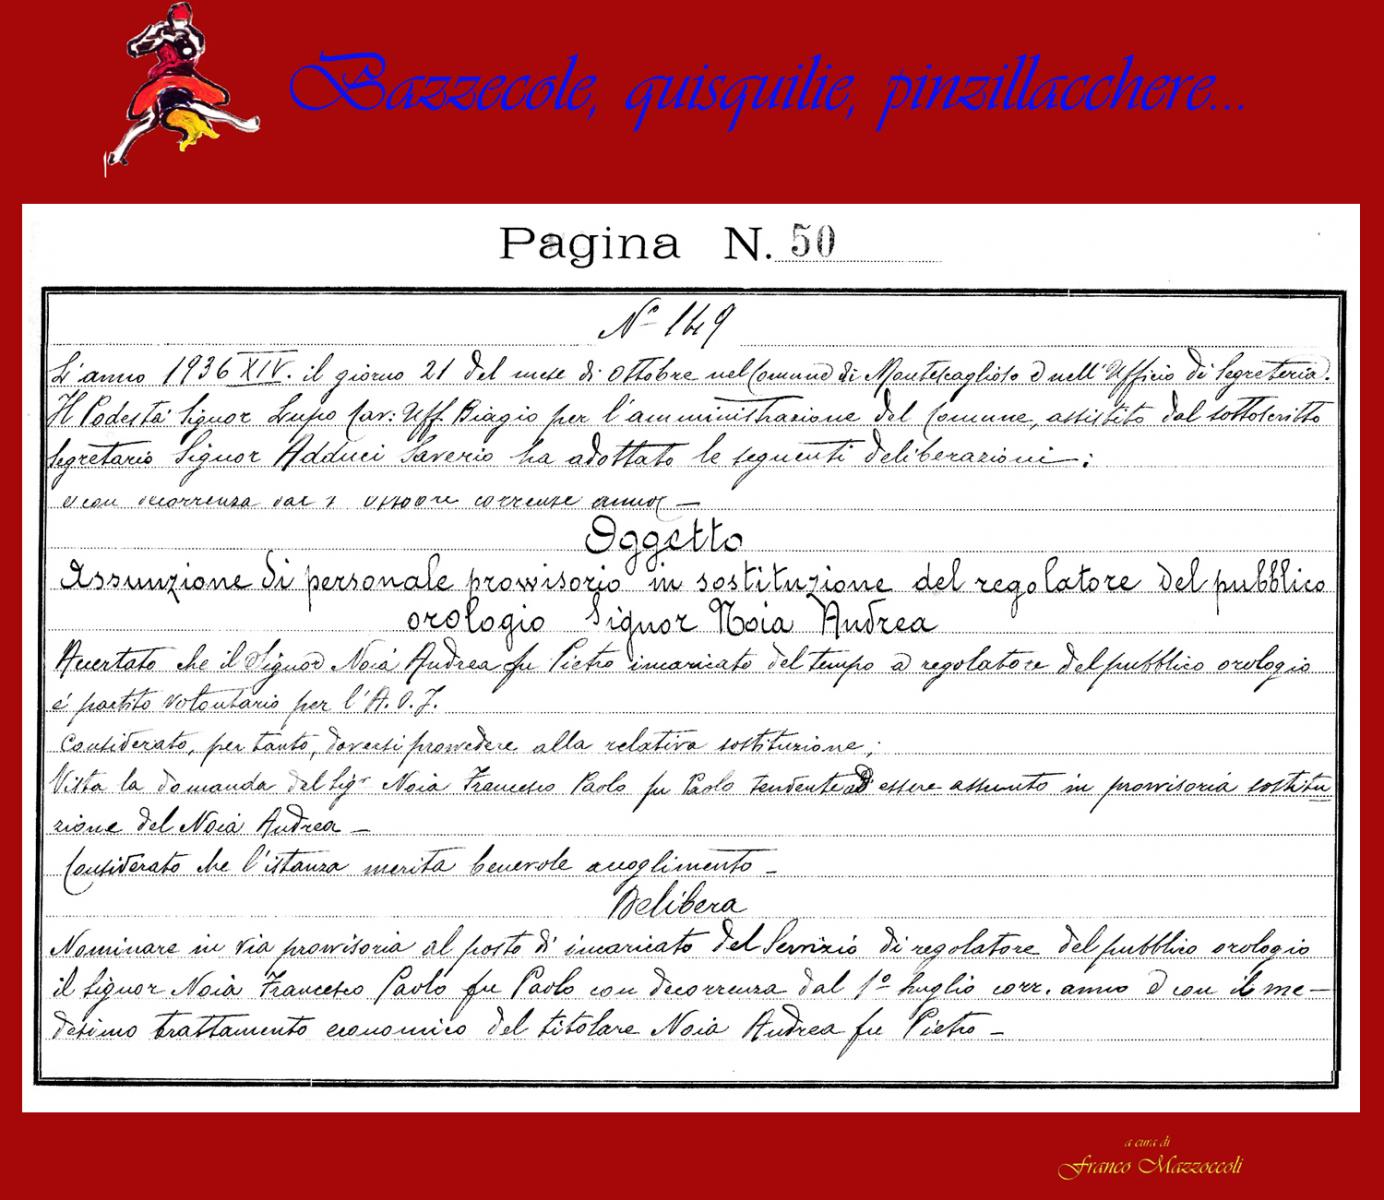 Bazzecole, quisquilie, pinzillacchere...
Pagina N. 50
N° 149
L'anno 1936 XIV. il giorno 21 del mese di ottobre nel Comune di Montescaglioso e nell'Ufficio di Segreteria.
Il Podestà Signor Lupo Cav: Uff. Biagio per l'amministrazione del Comune, assistito dal sottoscritto
Segretario Signor Adduci Saverio ha adottato le seguenti deliberazioni:
e con decorrenza dal 1 ottobre corrente anno —
Oggetto
Assunzione di personale provvisorio in sostituzione del regolatore del pubblico
orologio Signor Noia Andrea
Avertato che il Signor Noia Andrea fu Pietro incaricato del tempo a regolatore del pubblico orologio
è partito volontario per l'A.O.I.
Considerato, per tanto, doversi provvedere alla relativa sostituzione;
Vista la domanda del Sigr Noia Francesco Paolo fu Paolo tendente ad essere assunto in provvisoria sostitu
zione del Noia Andrea —
Considerato che l'istanza merita benevole accoglimento —
Delibera
Nominare in via provvisoria al posto di incaricato del Servizio di regolatore del pubblico orologio
il Signor Noia Francesco Paolo fu Paolo con decorrenza dal 1° luglio corr. anno e con il me—
desimo trattamento economico del titolare Noia Andrea fu Pietro —
a cura di
Franco Mazzoccoli